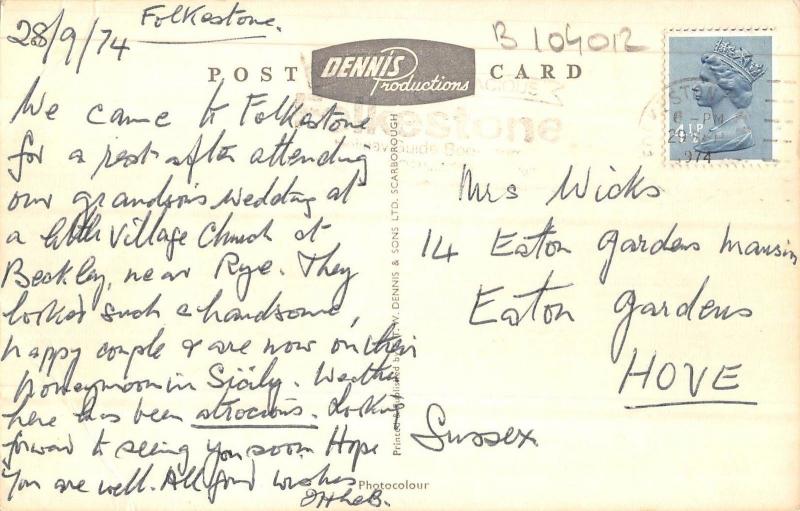 28/9/74 Folkestone.
B 104012
POST CARD
DENNIS
Productions
We came to Folkestone
for a rest after attending
our grandson's wedding at
a little Village Church at
Beckley, near Rye. They
looked such a handsome,
happy couple & are now on their
honeymoon in Sicily. Weather
here has been atrocious. Looking
forward to seeing you soon. Hope
you are well. All good wishes
Photocolour
Printed & Published by E.T.W. DENNIS & SONS LTD. SCARBOROUGH
Folkestone
6-PM
1974
4½P
Mrs Wicks
14 Eaton Gardens Mansion
Eaton Gardens
HOVE
Sussex